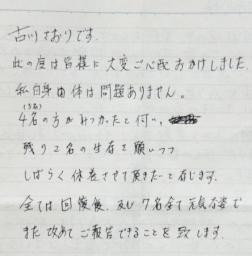 古川さおりです。
此の度は皆様に大変ご心配おかけしました。
私自身の体は問題ありません。
(うち)
4名の方がみつかったと伺い、
残り2名の生存を願いつつ
しばらく休養させて頂きたいと存じます。
全ては回復後、及び7名全て元気な姿で
また改めてご報告できることを致します。